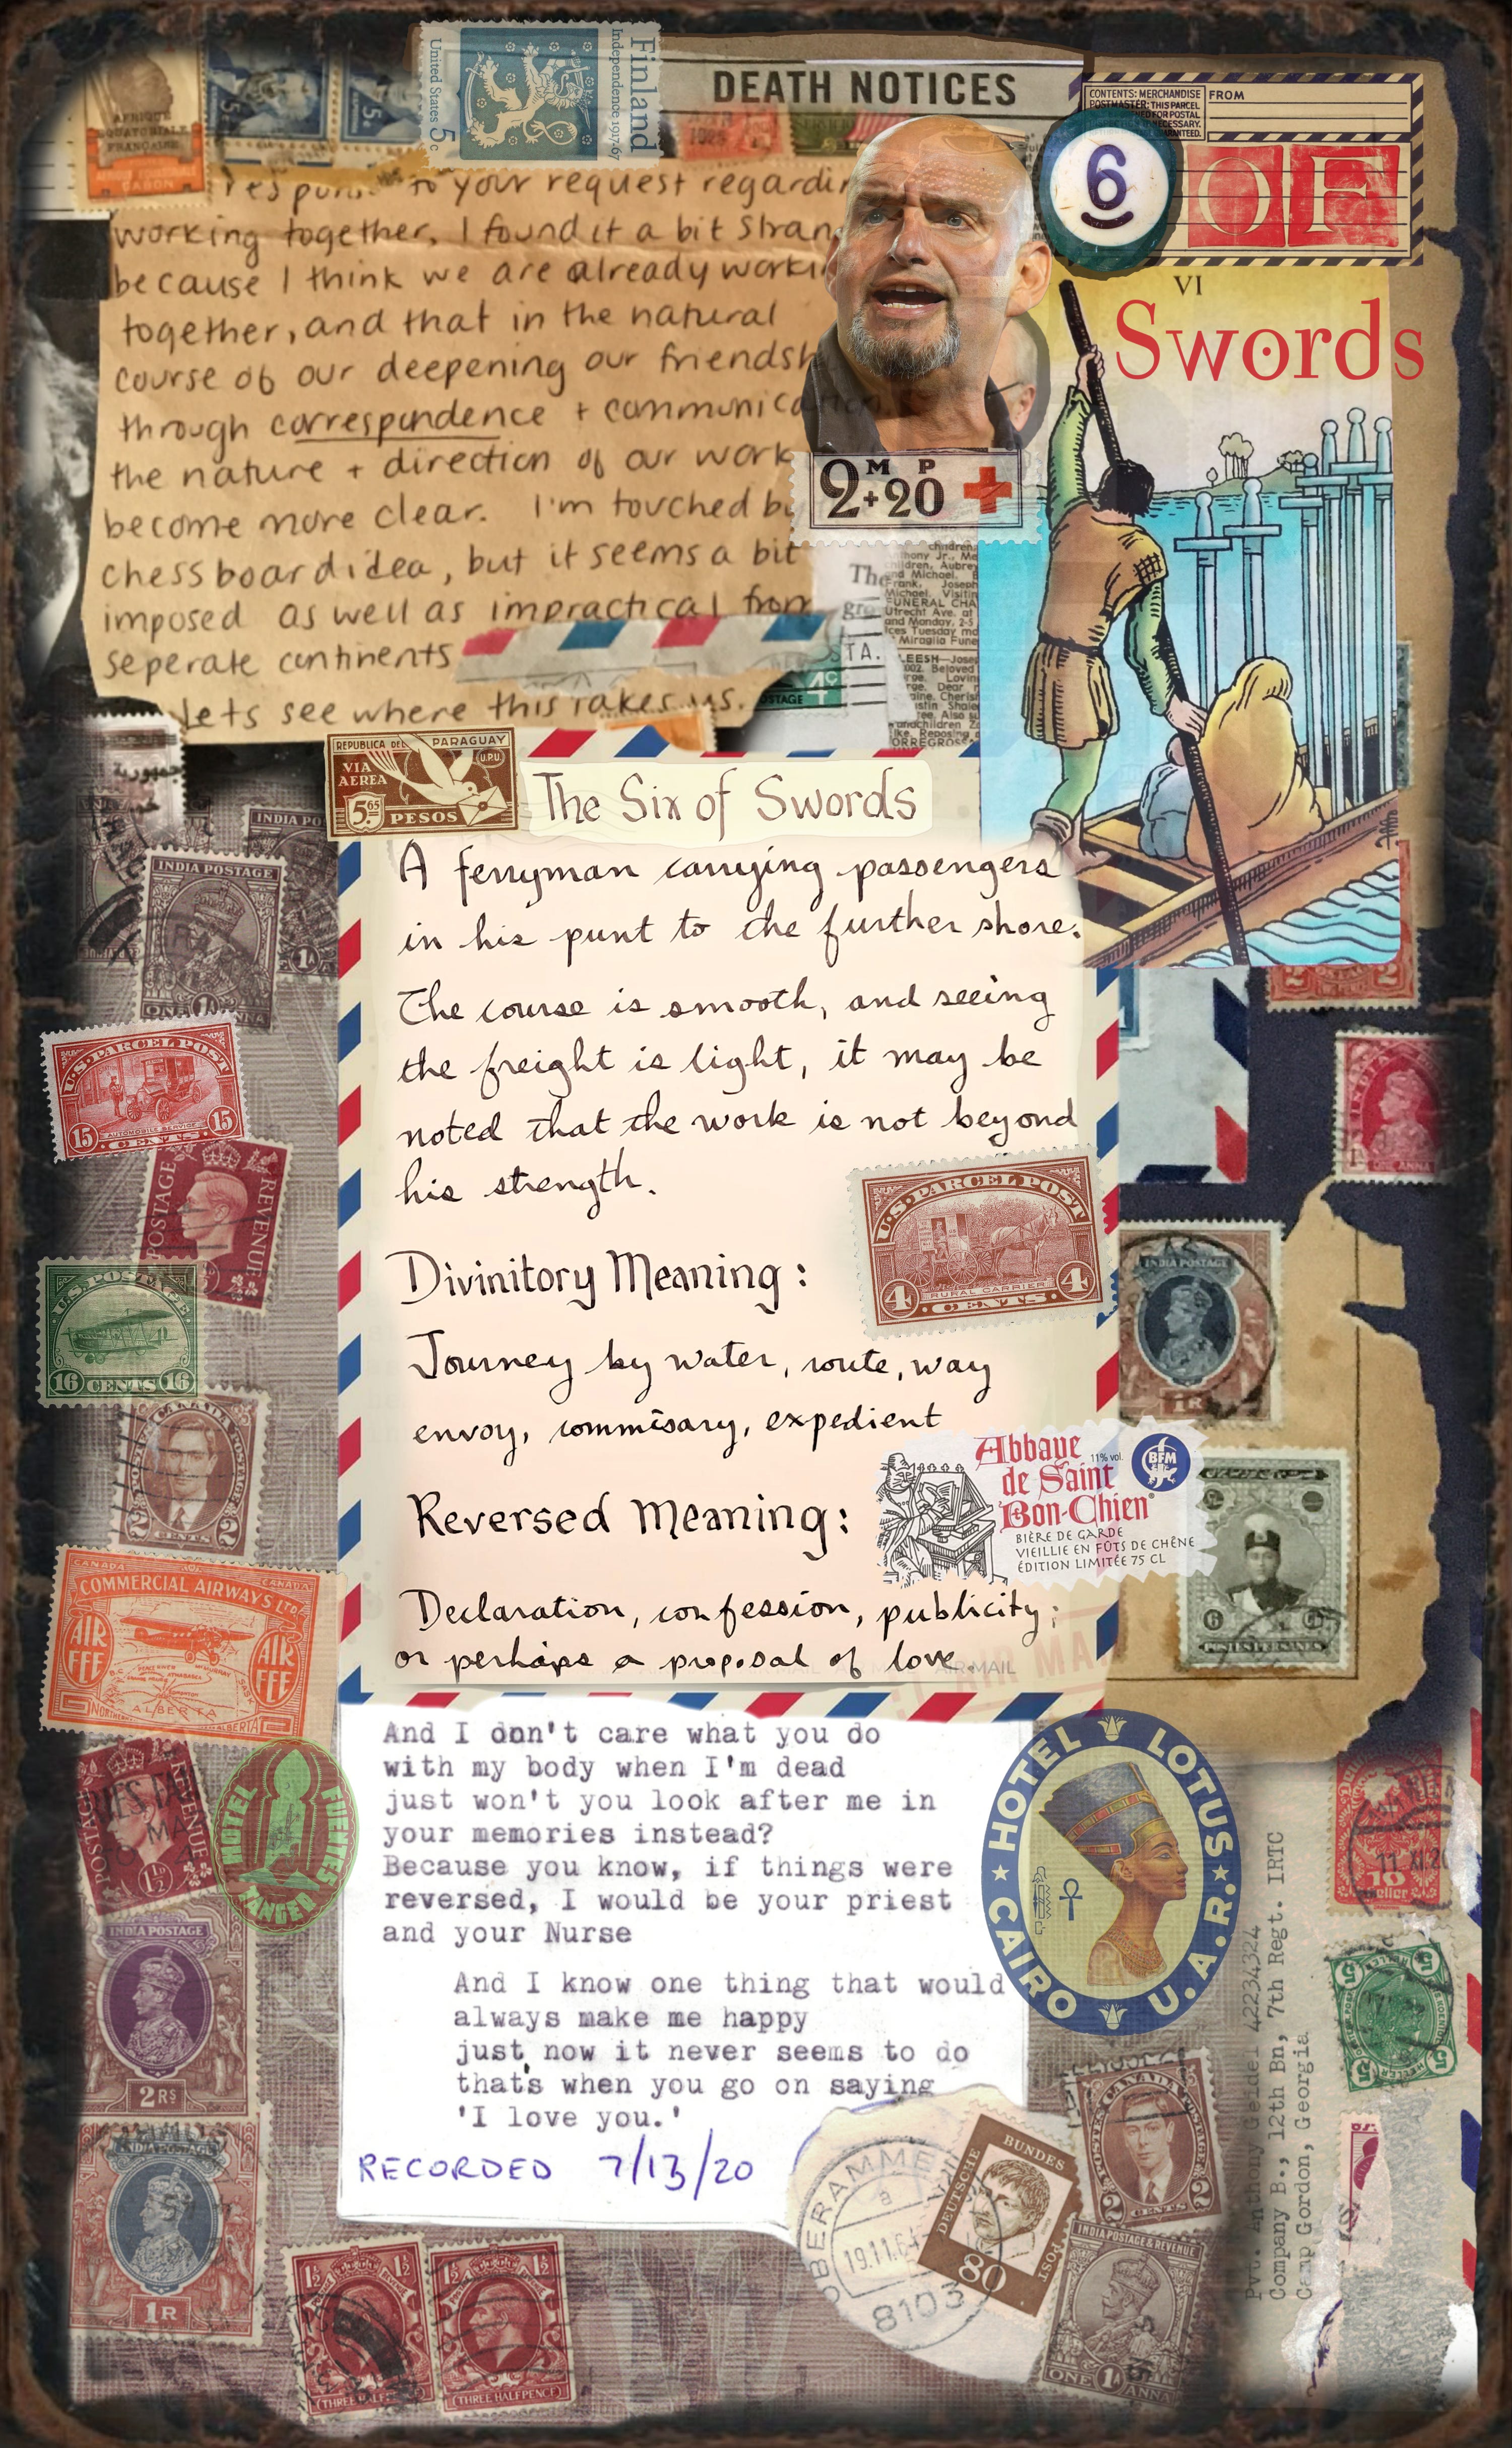 Finland
Independence 1917-67
United States 5c
DEATH NOTICES
CONTENTS: MERCHANDISE
POSTMASTER: THIS PARCEL
FROM
AFRIQUE
EQUATORIALE
FRANCAISE
GABON
6
OF
VI
Swords
to your request regardin
working together, I found it a bit stran
because I think we are already worki
together, and that in the natural
course of our deepening our friendsh
through correspondence + communica
the nature + direction of our work
become more clear. I'm touched by
chessboard idea, but it seems a bit
imposed as well as impractical from
seperate continents
lets see where this takes us.
M P
2+20
REPUBLICA DEL PARAGUAY
VIA
AEREA
U.P.U.
5.65
PESOS
The Six of Swords
A ferryman carrying passengers
in his punt to the further shore.
The course is smooth, and seeing
the freight is light, it may be
noted that the work is not beyond
his strength.
Divinitory Meaning:
Journey by water, route, way
envoy, commisary, expedient
Reversed Meaning:
Declaration, confession, publicity;
or perhaps a proposal of love.
AIR MAIL
U.S. PARCEL POST
4 RURAL CARRIER 4
CENTS
Abbaye
de Saint
Bon-Chien
11% vol.
BFM
BIÈRE DE GARDE
VIEILLIE EN FÛTS DE CHÊNE
ÉDITION LIMITÉE 75 CL
INDIA POSTAGE
U.S. PARCEL POST
15 AUTOMOBILE SERVICE 15
CENTS
POSTAGE REVENUE
U.S. POSTAGE
16 CENTS 16
2 CENTS 2
CANADA CANADA
COMMERCIAL AIRWAYS LTD.
AIR
FEE
AIR
FEE
ALBERTA
INDIA POSTAGE
1R
6
POSTES PERSANES
And I don't care what you do
with my body when I'm dead
just won't you look after me in
your memories instead?
Because you know, if things were
reversed, I would be your priest
and your Nurse
And I know one thing that would
always make me happy
just now it never seems to do
that's when you go on saying
'I love you.'
RECORDED 7/13/20
POSTAGE REVENUE
1½
HOTEL FUENTES
TANGER
HOTEL LOTUS
CAIRO U.A.R.
INDIA POSTAGE
2Rs
INDIA POSTAGE
1R
(THREE HALFPENCE)
(THREE HALFPENCE)
OBERAMME
19.11.64
8103
DEUTSCHE BUNDES POST
80
POSTES CANADA POSTAGE
2 CENTS 2
INDIA POSTAGE & REVENUE
ONE 1A ANNA
Pvt. Anthony Geidel 42234324
Company B., 12th Bn, 7th Regt. IRTC
Camp Gordon, Georgia
10
Heller
5 5